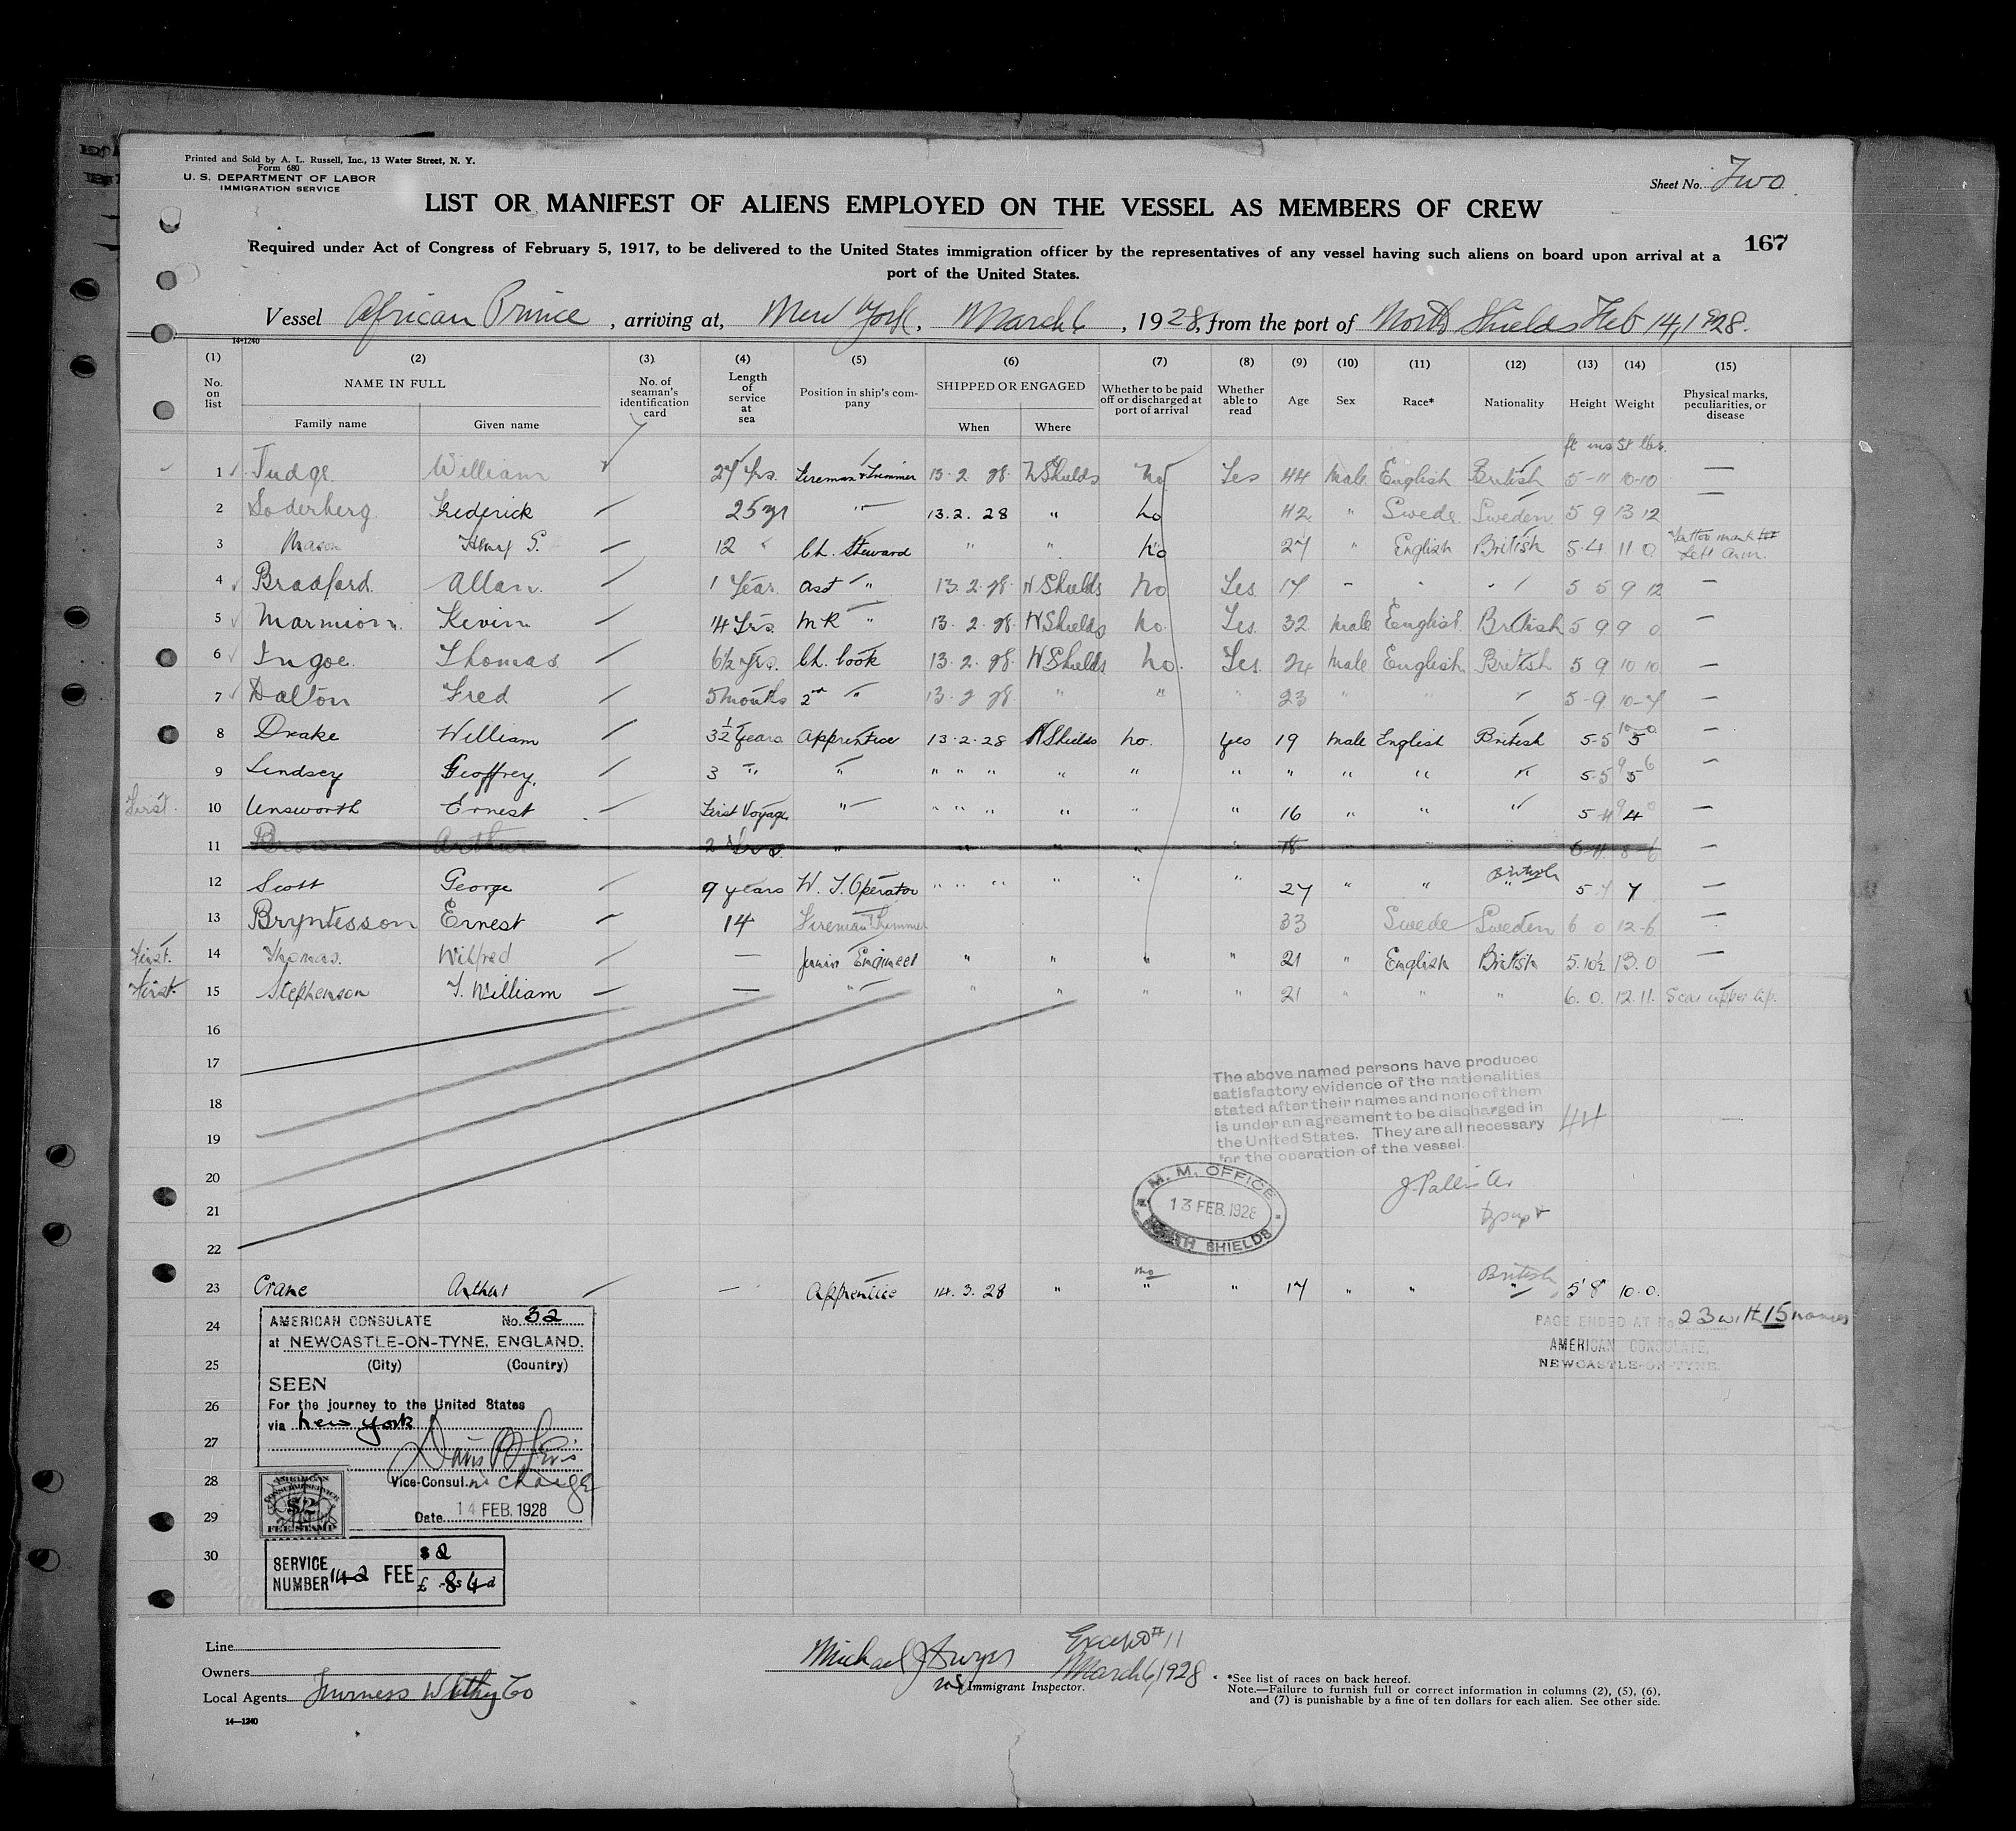 Printed and Sold by A. L. Russell, Inc., 13 Water Street, N. Y.
Form 680
U. S. DEPARTMENT OF LABOR
IMMIGRATION SERVICE
Sheet No. Two
LIST OR MANIFEST OF ALIENS EMPLOYED ON THE VESSEL AS MEMBERS OF CREW
167
Required under Act of Congress of February 5, 1917, to be delivered to the United States immigration officer by the representatives of any vessel having such aliens on board upon arrival at a
port of the United States.
Vessel African Prince, arriving at, New York, March 6, 1928, from the port of North Shields Feb 14, 1928.
14-1240
(1) (2) (3) (4) (5) (6) (7) (8) (9) (10) (11) (12) (13) (14) (15)
No. on list NAME IN FULL Family name Given name No. of seaman's identification card Length of service at sea Position in ship's company SHIPPED OR ENGAGED When Where Whether to be paid off or discharged at port of arrival Whether able to read Age Sex Race* Nationality Height Weight Physical marks, peculiarities, or disease
ft ins St lbs.
1 Judge William 27 Yrs. Fireman & Trimmer 13.2.28 N Shields No Yes 44 Male English British 5-11 10-10 —
2 Soderberg Frederick 25 yr " 13.2.28 " No 42 " Swede Sweden 5 9 13 12 —
3 Mason Henry G. 12 " Ch. Steward " " No 27 " English British 5.4 11.0 Tattoo mark Left Arm.
4 Bradford Allan 1 Year Asst " 13.2.28 N Shields No Yes 17 - " " 5 5 9 12 —
5 Marmion Kevin 14 Yrs. M R " 13.2.28 N Shields No. Yes. 32 Male English British 5 9 9 0 —
6 Ingoe Thomas 6½ yrs. Ch. Cook 13.2.28 N Shields No. Yes. 24 Male English British 5 9 10 10 —
7 Dalton Fred 5 months 2nd " 13.2.28 " " " 23 " " " 5-9 10-7 —
8 Drake William 3½ Years Apprentice 13.2.28 N Shields No. Yes 19 Male English British 5-5 10-0 —
9 Lindsey Geoffrey. 3 " " " " " " " " " " " " 5-5 9 6 —
First. 10 Unsworth Ernest First Voyage " " " " " " " 16 " " " 5-4 9 0 —
11 Brown Arthur 2 Yrs. " " " " " 18 " 8-6 —
12 Scott George 9 years W. T. Operator " " " " " " 27 " " British 5 7 —
13 Bryntesson Ernest 14 Fireman & Trimmer 33 Swede Sweden 6 0 12-6 —
First. 14 Thomas. Wilfred — Junior Engineer " " " " 21 " English British 5.10½ 13.0 —
First. 15 Stephenson T. William — " " " " " 21 " " " 6.0. 12.11. Scar upper lip.
16
17
18
19
20
21
22
The above named persons have produced
satisfactory evidence of the nationalities
stated after their names and none of them
is under an agreement to be discharged in
the United States. They are all necessary
for the operation of the vessel.
44
M. M. OFFICE
13 FEB. 1928
NORTH SHIELDS
J. Pallister
23 Crane Arthur — Apprentice 14.3.28 " No " " 17 " " British 5' 8" 10.0.
PAGE ENDED AT No 23 with 15 names
AMERICAN CONSULATE,
NEWCASTLE-ON-TYNE.
24
25
26
27
28
29
30
AMERICAN CONSULATE No. 32
at NEWCASTLE-ON-TYNE, ENGLAND.
(City) (Country)
SEEN
For the journey to the United States
via New York
Vice-Consul. in charge
Date 14 FEB. 1928
AMERICAN
CONSULAR SERVICE
$2
FEE STAMP
SERVICE NUMBER 142 FEE $2 £ -8s 4d
Line
Owners
Local Agents Furness Withy Co
14—1240
Michael J Dwyer Except #11
March 6, 1928
US Immigrant Inspector.
*See list of races on back hereof.
Note.—Failure to furnish full or correct information in columns (2), (5), (6),
and (7) is punishable by a fine of ten dollars for each alien. See other side.